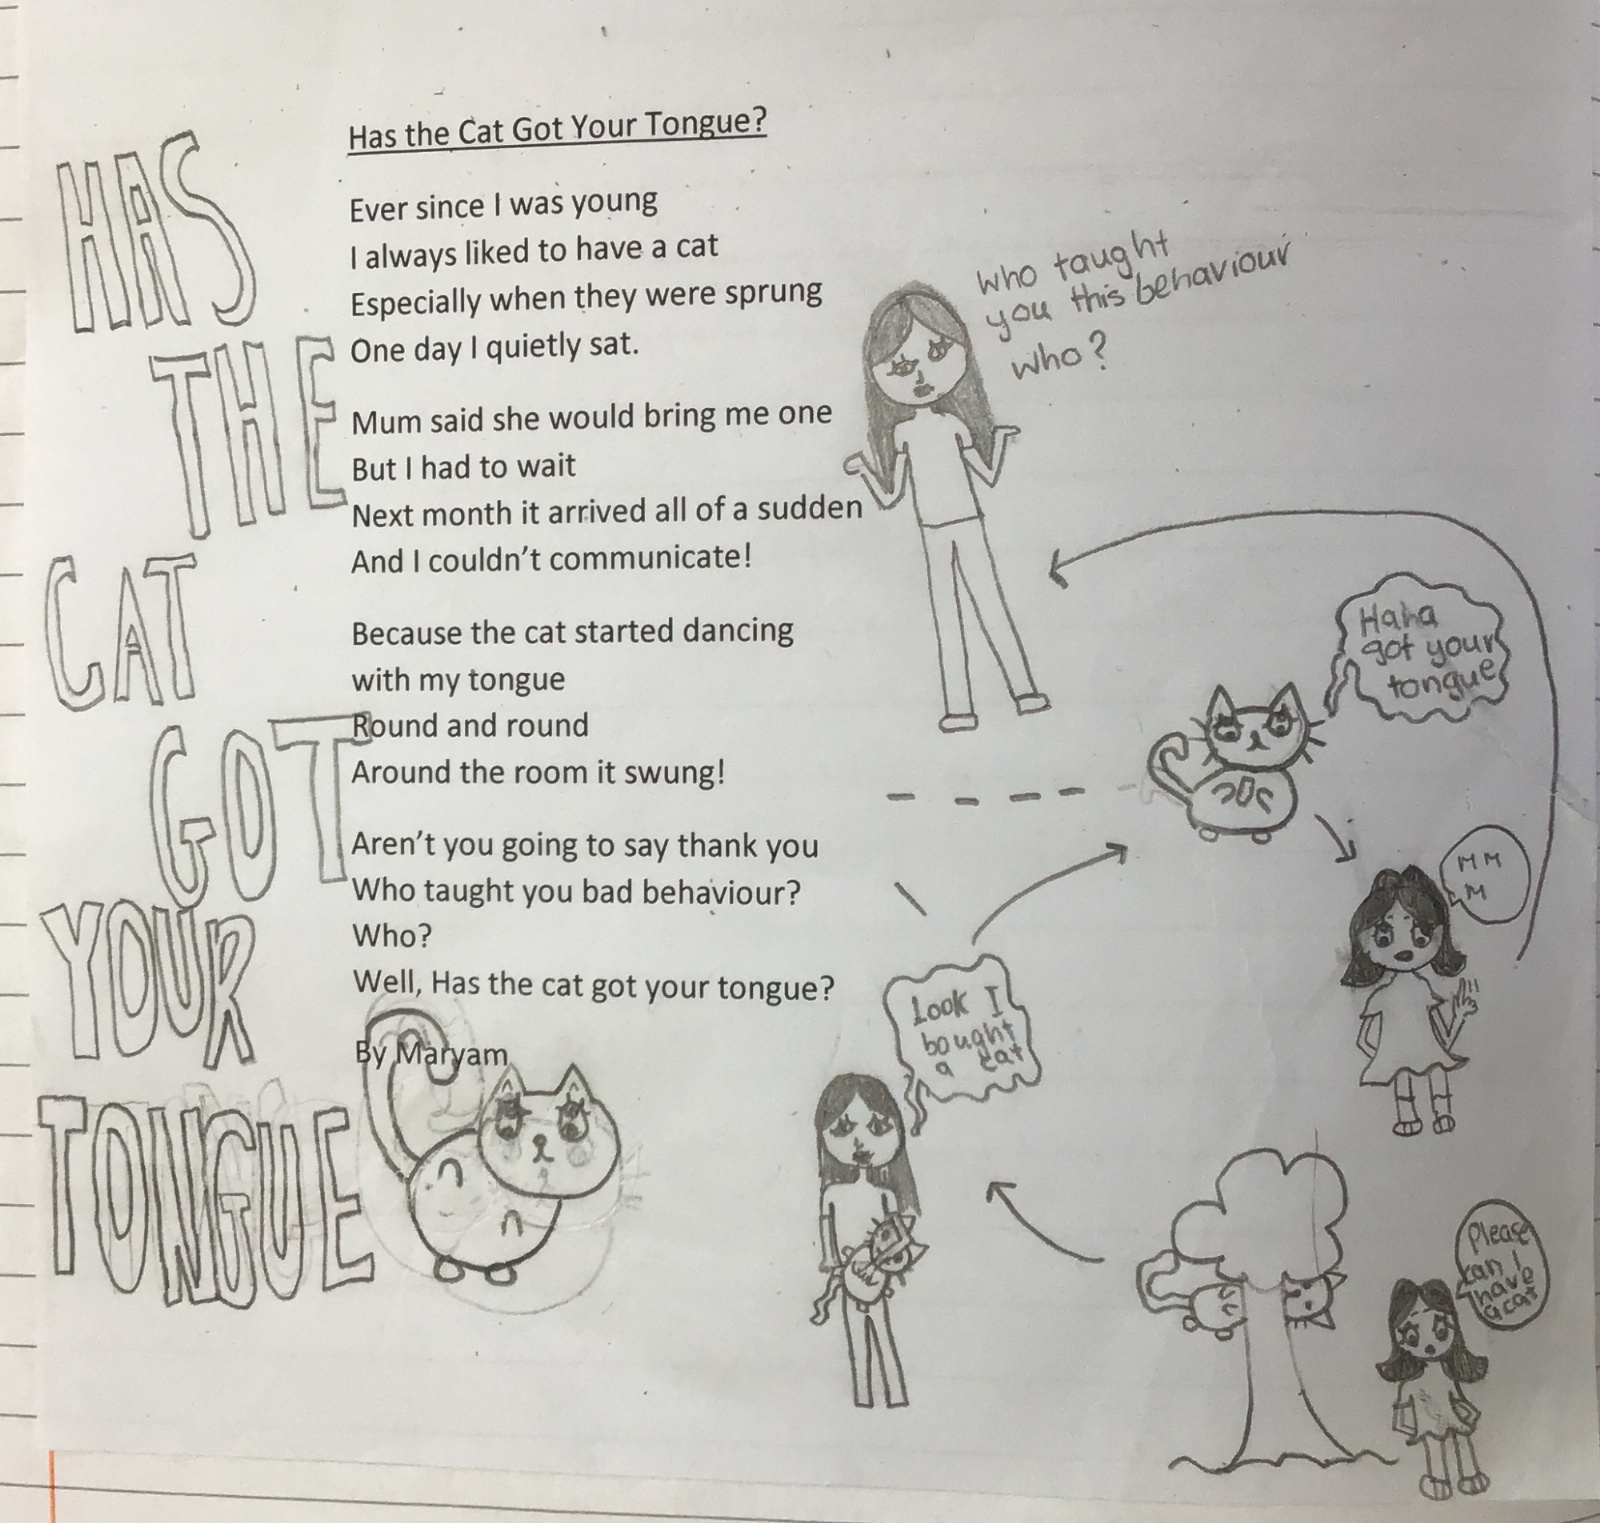 HAS
THE
CAT
GOT
YOUR
TONGUE
Has the Cat Got Your Tongue?
Ever since I was young
I always liked to have a cat
Especially when they were sprung
One day I quietly sat.
Mum said she would bring me one
But I had to wait
Next month it arrived all of a sudden
And I couldn't communicate!
Because the cat started dancing
with my tongue
Round and round
Around the room it swung!
Aren't you going to say thank you
Who taught you bad behaviour?
Who?
Well, Has the cat got your tongue?
By Maryam
who taught
you this behaviour
who?
Haha
got your
tongue
MM
M
Look I
bought
a cat
Please
can I
have
a cat